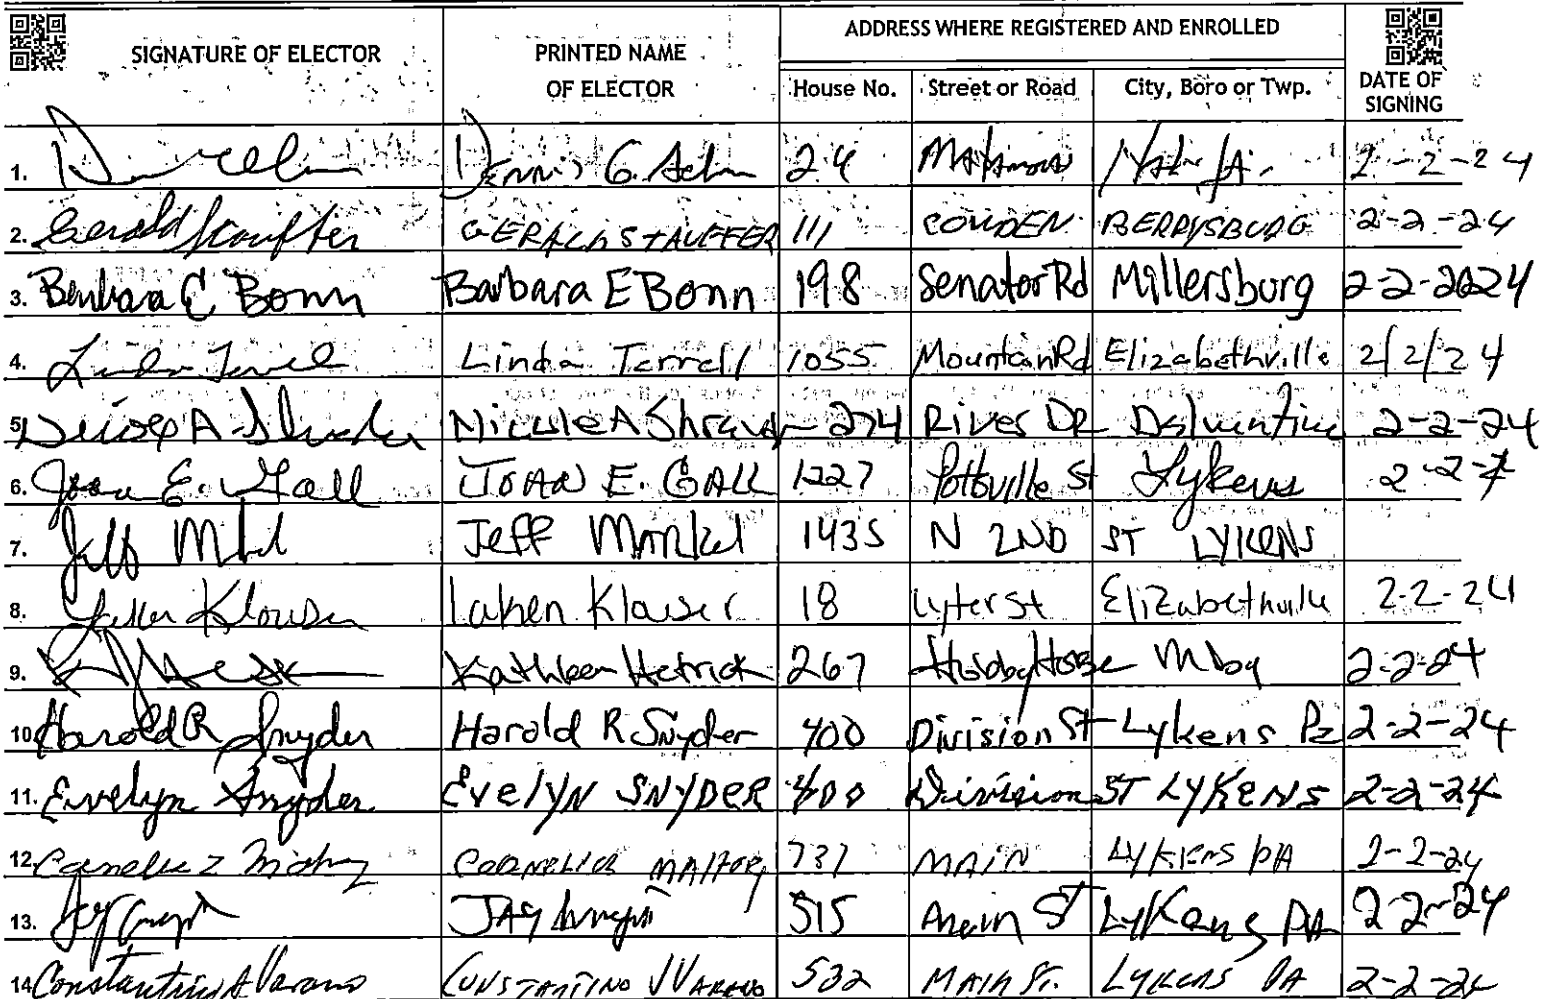 SIGNATURE OF ELECTOR PRINTED NAME OF ELECTOR ADDRESS WHERE REGISTERED AND ENROLLED DATE OF SIGNING
House No. Street or Road City, Boro or Twp.
1. Dennis G. 24 2-2-24
2. Gerald Stauffer GERALD STAUFFER 111 BERRYSBURG 2-2-24
3. Barbara E Bonn Barbara E Bonn 198 Senator Rd Millersburg 2-2-2024
4. Linda Terrell Linda Terrell 1055 Mountain Rd Elizabethville 2/2/24
5. A 274 River DR 2-2-24
6. Joan E. Gall JOAN E. GALL 1227 Lykens 2-2-
7. Jeff Jeff 1435 N 2ND ST LYKENS
8. 18 Lyter St Elizabethville 2-2-24
9. Kathleen Hetrick 267 Hobby Horse Mbg 2-2-24
10. Harold R Snyder Harold R Snyder 400 Division St Lykens Pa 2-2-24
11. Evelyn Snyder EvelyN SNYDER 400 Division ST LYKENS 2-2-24
12. 737 MAIN LYKENS PA 2-2-24
13. JAY 515 St LyKens PA 2-2-24
14. Constantino Varano CONSTANTINO VARANO 532 MAIN ST. LYKENS PA 2-2-24